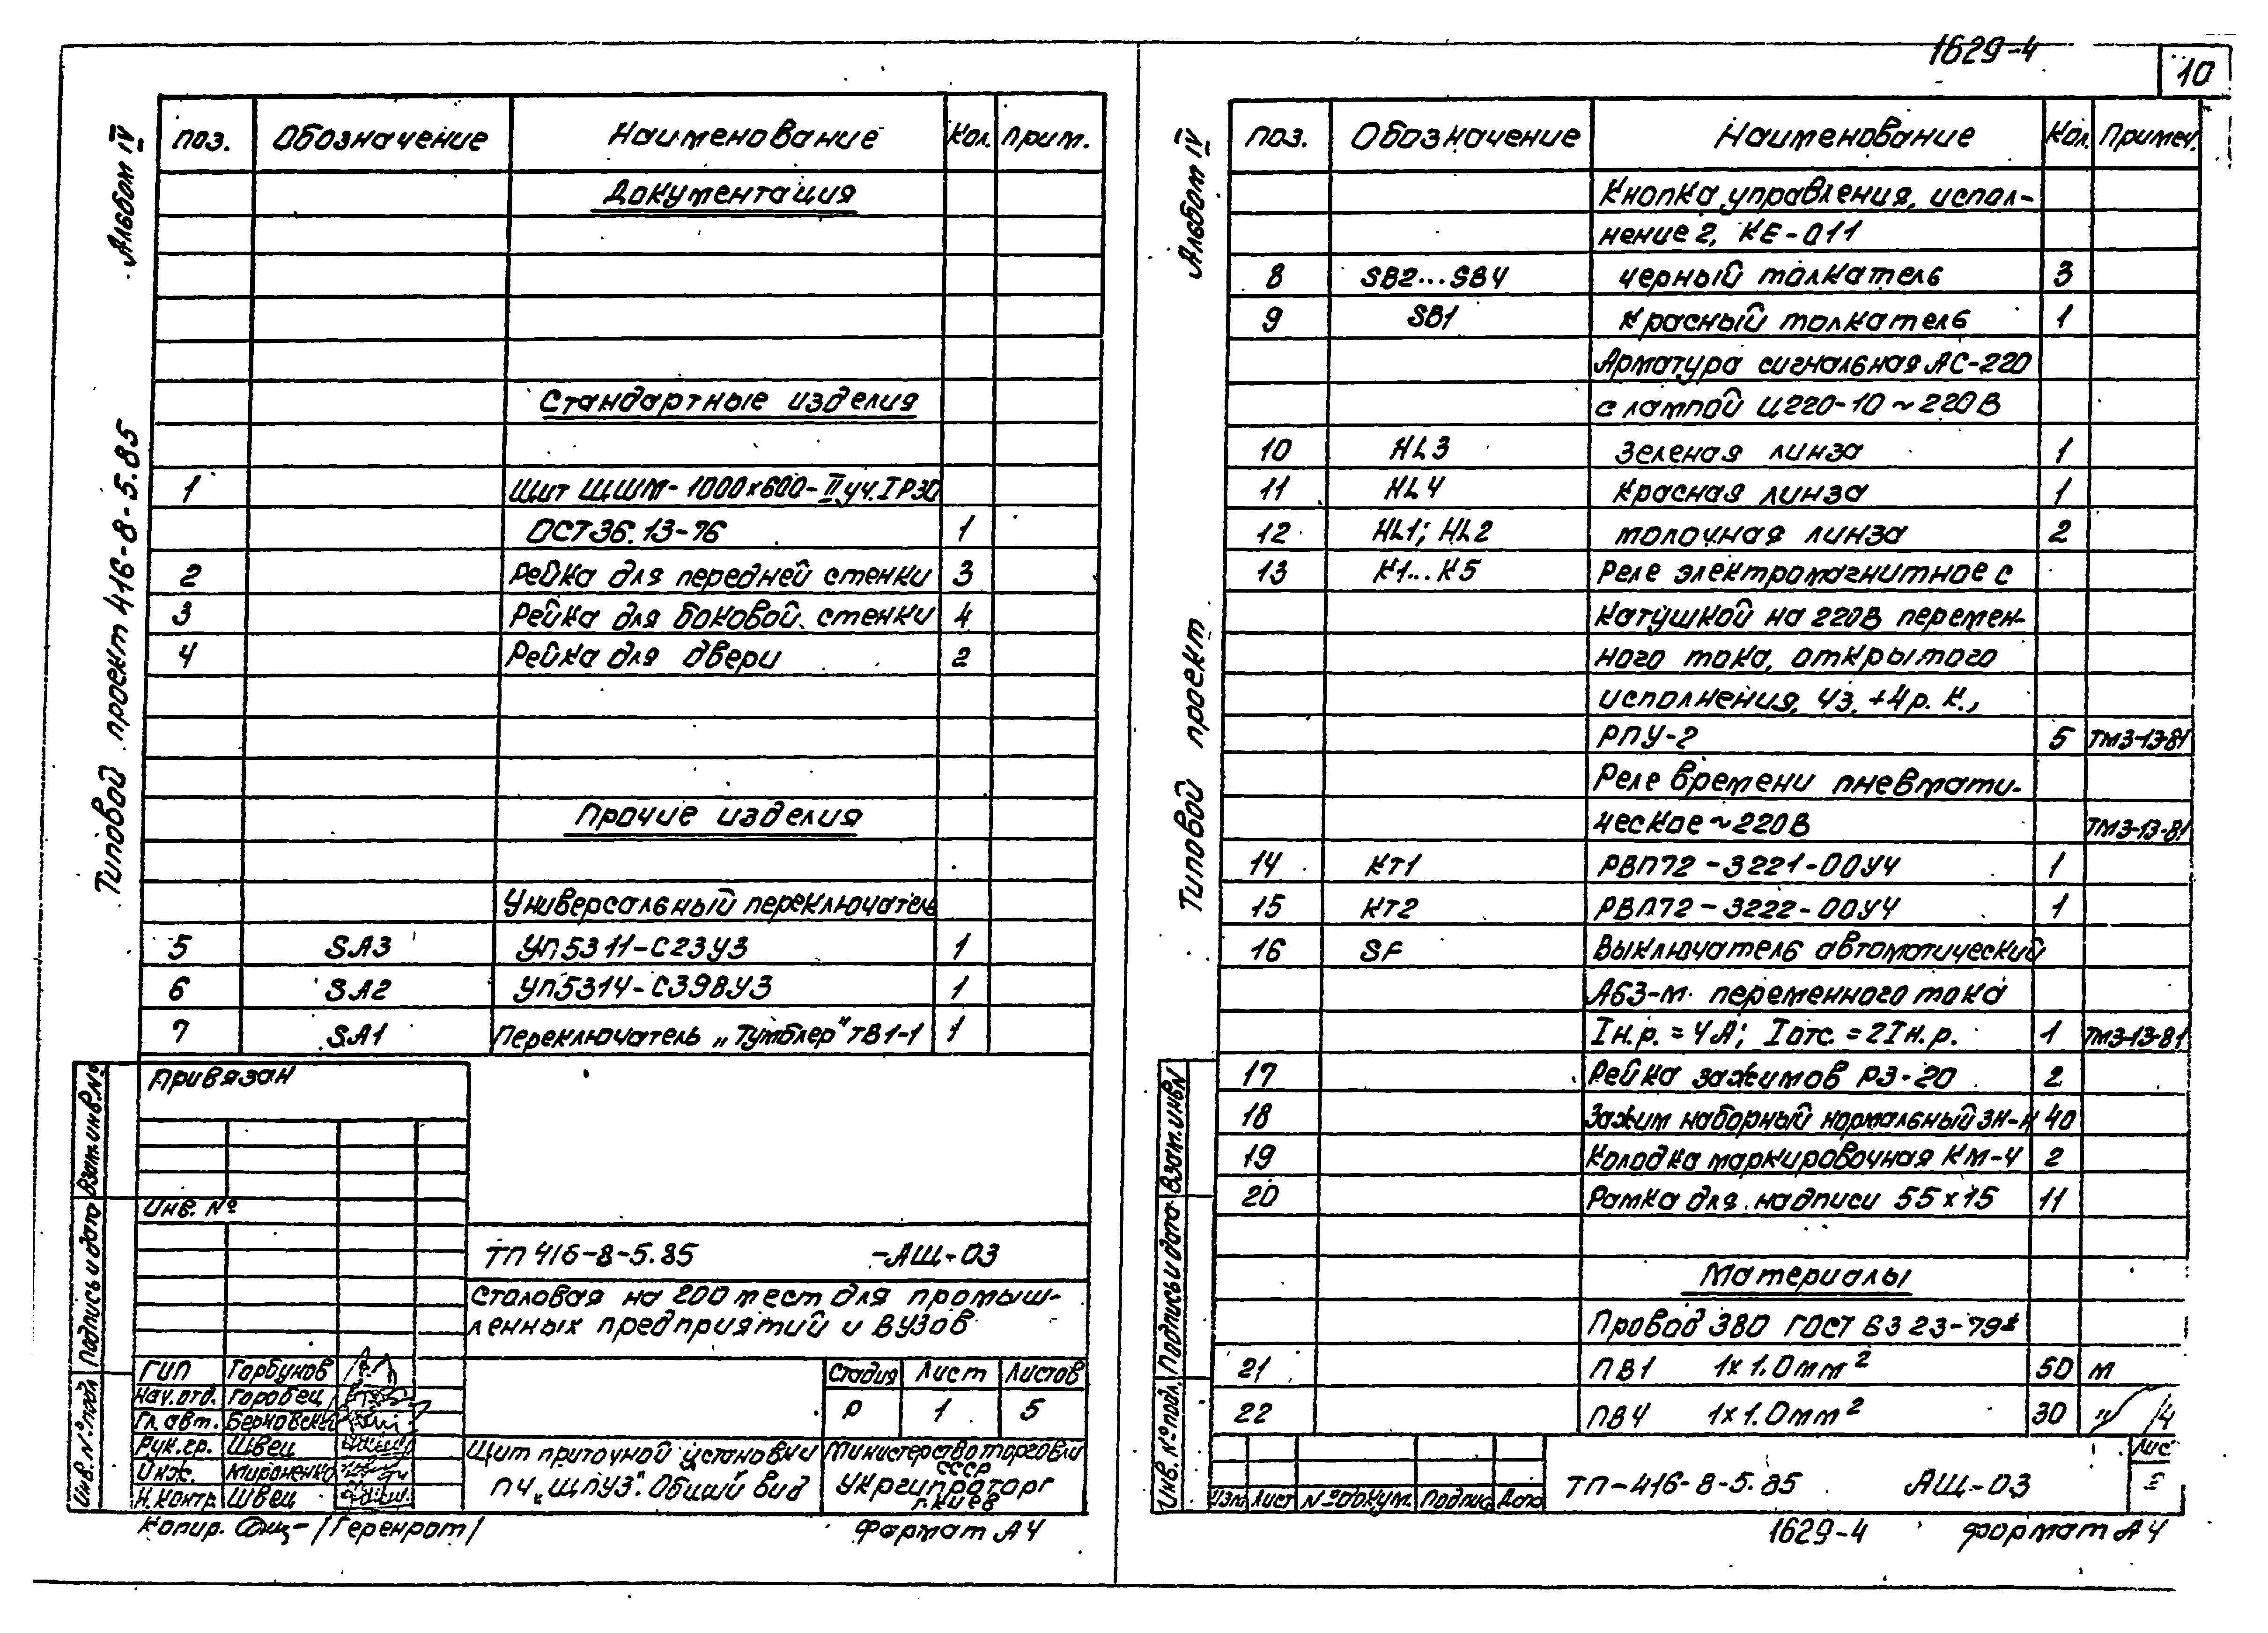 1629-4
10
Альбом IV
Типовой проект 416-8-5.85
поз. Обозначение Наименование Кол. Прим.
Документация
Стандартные изделия
1 Щит ЩШМ-1000х600-II уч. IP30
ОСТ36.13-76 1
2 Рейка для передней стенки 3
3 Рейка для боковой стенки 4
4 Рейка для двери 2
Прочие изделия
Универсальный переключатель
5 SA3 УП5311-С23У3 1
6 SA2 УП5314-С398У3 1
7 SA1 Переключатель „Тумблер" ТВ1-1 1
Привязан
Инв. №
Взам. инв. №
Подпись и дата
Инв. № подл
ТП 416-8-5.85 -АЩ-03
Столовая на 200 мест для промыш-
ленных предприятий и ВУЗов
ГИП Горбунов
Нач. отд. Горобец
Гл. авт.
Рук. гр. Швец
Инж. Мироненко
Н. контр. Швец
Стадия Лист Листов
Р 1 5
Щит приточной установки
П4 „ЩПУ3". Общий вид
Министерство торговли
СССР
Укргипроторг
г. Киев
Копир.
Формат А4
Альбом IV
Типовой проект
поз. Обозначение Наименование Кол. Примеч.
Кнопка управления, испол-
нение 2, КЕ-011
8 SB2...SB4 черный толкатель 3
9 SB1 красный толкатель 1
Арматура сигнальная АС-220
с лампой Ц220-10 ~220В
10 HL3 зеленая линза 1
11 HL4 красная линза 1
12 HL1; HL2 молочная линза 2
13 К1...К5 Реле электромагнитное с
катушкой на 220В перемен-
ного тока, открытого
исполнения, 4з.+4р.к.,
РПУ-2 5 ТМ3-13-81
Реле времени пневмати-
ческое ~220В ТМ3-13-81
14 КТ1 РВП72-3221-00У4 1
15 КТ2 РВП72-3222-00У4 1
16 SF Выключатель автоматический
А63-М переменного тока
Iн.р. = 4А; Iотс. = 2Iн.р. 1 ТМ3-13-81
17 Рейка зажимов РЗ-20 2
18 Зажим наборный нормальный ЗН-Н 40
19 Колодка маркировочная КМ-4 2
20 Рамка для надписи 55х15 11
Материалы
Провод 380 ГОСТ 6323-79*
21 ПВ1 1х1.0мм² 50 м
22 ПВ4 1х1.0мм² 30 "
Взам. инв N
Подпись и дата
Инв. № подл.
Изм Лист № докум. Подпис Дата
ТП-416-8-5.85 АЩ-03
Лис
1629-4 Формат А4